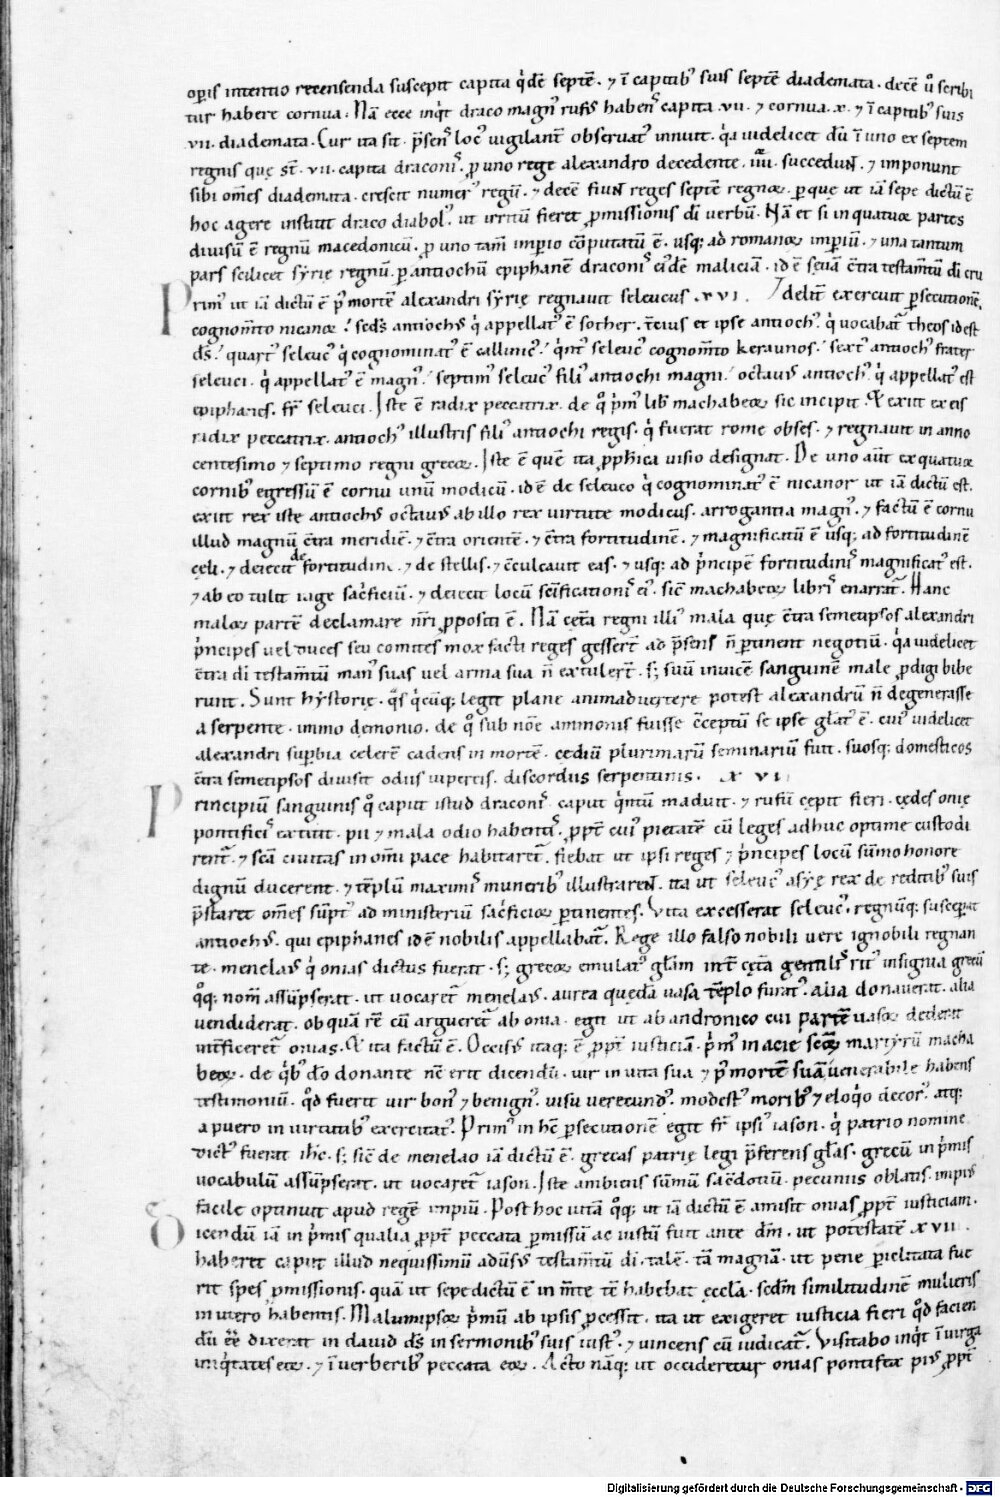 oꝑis intentio recensenda suscepit capita q̇dē septē. ⁊ ī capitib; suis septē diademata. decē ů scribi
tur habere cornua. Nā ecce inqͥt draco magn᾽ ruf᾽ habens capita .vii. ⁊ cornua .x. ⁊ ī capitib; suis
.vii. diademata. Cur ita sit. p̄sens loc᾽ vigilant̄ obseruat᾽ innuit. qͥa uidelicet dū ī uno ex septem
regnis quę st̄ .vii. capita draconis. ꝓ uno rege alexandro decedente .iiii. succedunt. ⁊ imponunt
sibi om̄es diademata. crescit numer᾽ regū. ⁊ decē fiunt reges septē regnoꝝ. ꝑ que ut iā sepe dictū ē
hoc agere instituit draco diabol᾽. ut irritū fieret ꝓmissionis dī verbū. Nā et si in quatuor partes
diuisū ē regnū macedonicū. ꝓ uno tam̄ imperio cōputatū ē. usq; ad romanoꝝ imperiū. ⁊ una tantum
pars scilicet sẏrię regnū. ꝑ antiochū epiphanē draconis ei᾽dē maliciā. id ē seuā c̄tra testam̄tū dī cru
Prim᾽ ut iā dictū ē p᾽ mortē alexandri sẏrię regnauit seleucus .xvi. delit̄ exercuit ꝑsecutionē.
cognom̄to nicanor. sed᾽s antioch᾽ qͥ appellat᾽ ē sother. t̄cius et ipse antioch᾽. qͥ vocabat᾽ theos id est
d̄s. quart᾽ seleuc᾽ qͥ cognominat᾽ ē callinic᾽. qͥnt᾽ seleuc᾽ cognom̄to keraunos. sext᾽ antioch᾽ frater
seleuci. qͥ appellat᾽ ē magn᾽. septim᾽ seleuc᾽ fili᾽ antiochi magni. octau᾽ antioch᾽. qͥ appellat᾽ est
epiphanes. fr̄ seleuci. Iste ē radix peccatrix. de qͦ pͥm᾽ lib᾽ machabeoꝝ sic incipit. Et exiit ex eis
radix peccatrix. antioch᾽ illustris fili᾽ antiochi regis. qͥ fuerat rome obses. ⁊ regnauit in anno
centesimo ⁊ septimo regni grecoꝝ. Iste ē quē ita ꝓph̄ica visio designat. De uno aūt ex quatuor
cornib; egressū ē cornu unū modicū. id ē de seleuco qͥ cognominat᾽ ē nicanor ut iā dictū est.
exiit rex iste antioch᾽ octau᾽ ab illo rex virtute modicus. arrogantia magn᾽. ⁊ factū ē cornu
illud magnū c̄tra meridiē. ⁊ c̄tra orientē. ⁊ c̄tra fortitudinē. ⁊ magnificatū ē usq; ad fortitudinē
cęli. ⁊ deiecit de fortitudine. ⁊ de stellis. ⁊ c̄culcauit eas. ⁊ usq; ad pͥncipē fortitudinis magnificat᾽ est.
⁊ ab eo tulit iuge sac̄ficiū. ⁊ deiecit locū sc̄ificationis ei᾽. sic̄ machabeoꝝ libri enarrat̄. Hanc
maloꝝ partē declamare n̄ri ꝓpositi ē. Nā cęt̄a regni illi᾽ mala quę c̄tra semetipsos alexandri
pͥncipes vel duces seu comites mox facti reges gessert̄ ad p̄sens n̄ ꝑtinent negotiū. qͥa uidelicet
c̄tra dī testam̄tū man᾽ suas vel arma sua n̄ extulert̄. s; suū inuicē sanguinē male ꝓdigi bibe
runt. Sunt hẏstorię. qͣs qͥcūq; legit plane animaduertere potest alexandrū n̄ degenerasse
a serpente. immo demonio. de qͦ sub noīe ammonis fuisse c̄ceptū se ipse gl̄at᾽ ē. cui᾽ uidelicet
alexandri suꝑbia celerē cadens in mortē. cediū plurimarū seminariū fuit. suosq; domesticos
c̄tra semetipsos diuisit odiis vipereis. discordiis serpentinis. xvi
Principiū sanguinis qͦ caput istud draconis caput qͥntū maduit. ⁊ rufū cępit fieri. cędes onię
pontificis extitit. pii ⁊ mala odio habentis. ꝓpt̄ cui᾽ pietatē cū leges adhuc optime custodi
rent᾽. ⁊ sc̄a ciuitas in om̄i pace habitaret᾽. fiebat ut ipsi reges ⁊ pͥncipes locū sūmo honore
dignū ducerent. ⁊ tēplū maximis munerib; illustrarent. ita ut seleuc᾽ asẏę rex de redditib; suis
p̄staret om̄es sūpt᾽ ad ministeriū sac̄ficioꝝ ꝑtinentes. Vita excesserat seleuc᾽. regnūq; susceꝑat
antioch᾽. qui epiphanes id ē nobilis appellabat᾽. Rege illo falso nobili uere ignobili regnan
te. menela᾽ qͥ onias dictus fuerat. s; grecoꝝ emulat᾽ gl̄am int̄ cęt̄a gentilis rit᾽ insignia grecū
qͦq; nom̄ assūpserat. ut vocaret᾽ menela᾽. aurea quedā vasa tēplo furat᾽. alia donauerat. alia
uendiderat. ob quā rē cū argueret᾽ ab onia. egit ut ab andronico cui partē uasoꝝ dederit
int̄ficeret᾽ onias. Et ita factū ē. Occis᾽ itaq; ē ꝓpt̄ iusticiā. pͥm᾽ in acie sc̄oꝝ martẏrū macha
beoꝝ. de qͥb; dō donante n̄c erit dicendū. vir in vita sua ⁊ p᾽ mortē suā uenerabile habens
testimoniū. qd̄ fuerit vir bon᾽ ⁊ benign᾽. visu uerecund᾽. modest᾽ morib; ⁊ eloqͥo decor᾽. atq;
a puero in virtutib; exercitat᾽. Prim᾽ in hc̄ ꝑsecutionē egit fr̄ ipsi᾽ iason. qͥ patrio nomine
dict᾽ fuerat ih̄c. s; sic̄ de menelao iā dictū ē. grecas patrię legi p̄ferens gl̄as. grecū in pͥmis
vocabulū assūpserat. ut vocaret᾽ iason. Iste ambiens sūmū sac̄dotiū. pecuniis oblatis. impiis
facile optinuit apud regē impiū. Post hoc uitā qͦq; ut iā dictū ē amisit onias ꝓpt̄ iusticiam.
Dicendū iā in pͥmis qualia ꝓpt̄ peccata ꝑmissū ac iustū fuit ante dm̄. ut potestatē xvii
haberet caput illud nequissimū adūs᾽ testam̄tū dī. talē. tā magnā. ut pene ꝑiclitata fue
rit spes ꝓmissionis. quā ut sepe dictū ē in m̄te t̄c habebat ęccl̄a. scdm̄ similitudinē mulieris
in utero habentis. Malum ipsoꝝ pͥmū ab ipsis ꝓcessit. ita ut exigeret iusticia fieri qd̄ facien
dū eē dixerat in dauid d̄s in sermonib; suis iust᾽. ⁊ vincens cū iudicat᾽. Visitabo inqͥt ī uirga
iniqͥtates eoꝝ. ⁊ ī verberib; peccata eoꝝ. Acto nāq; ut occideretur onias pontifex pi᾽ ꝓpt̄